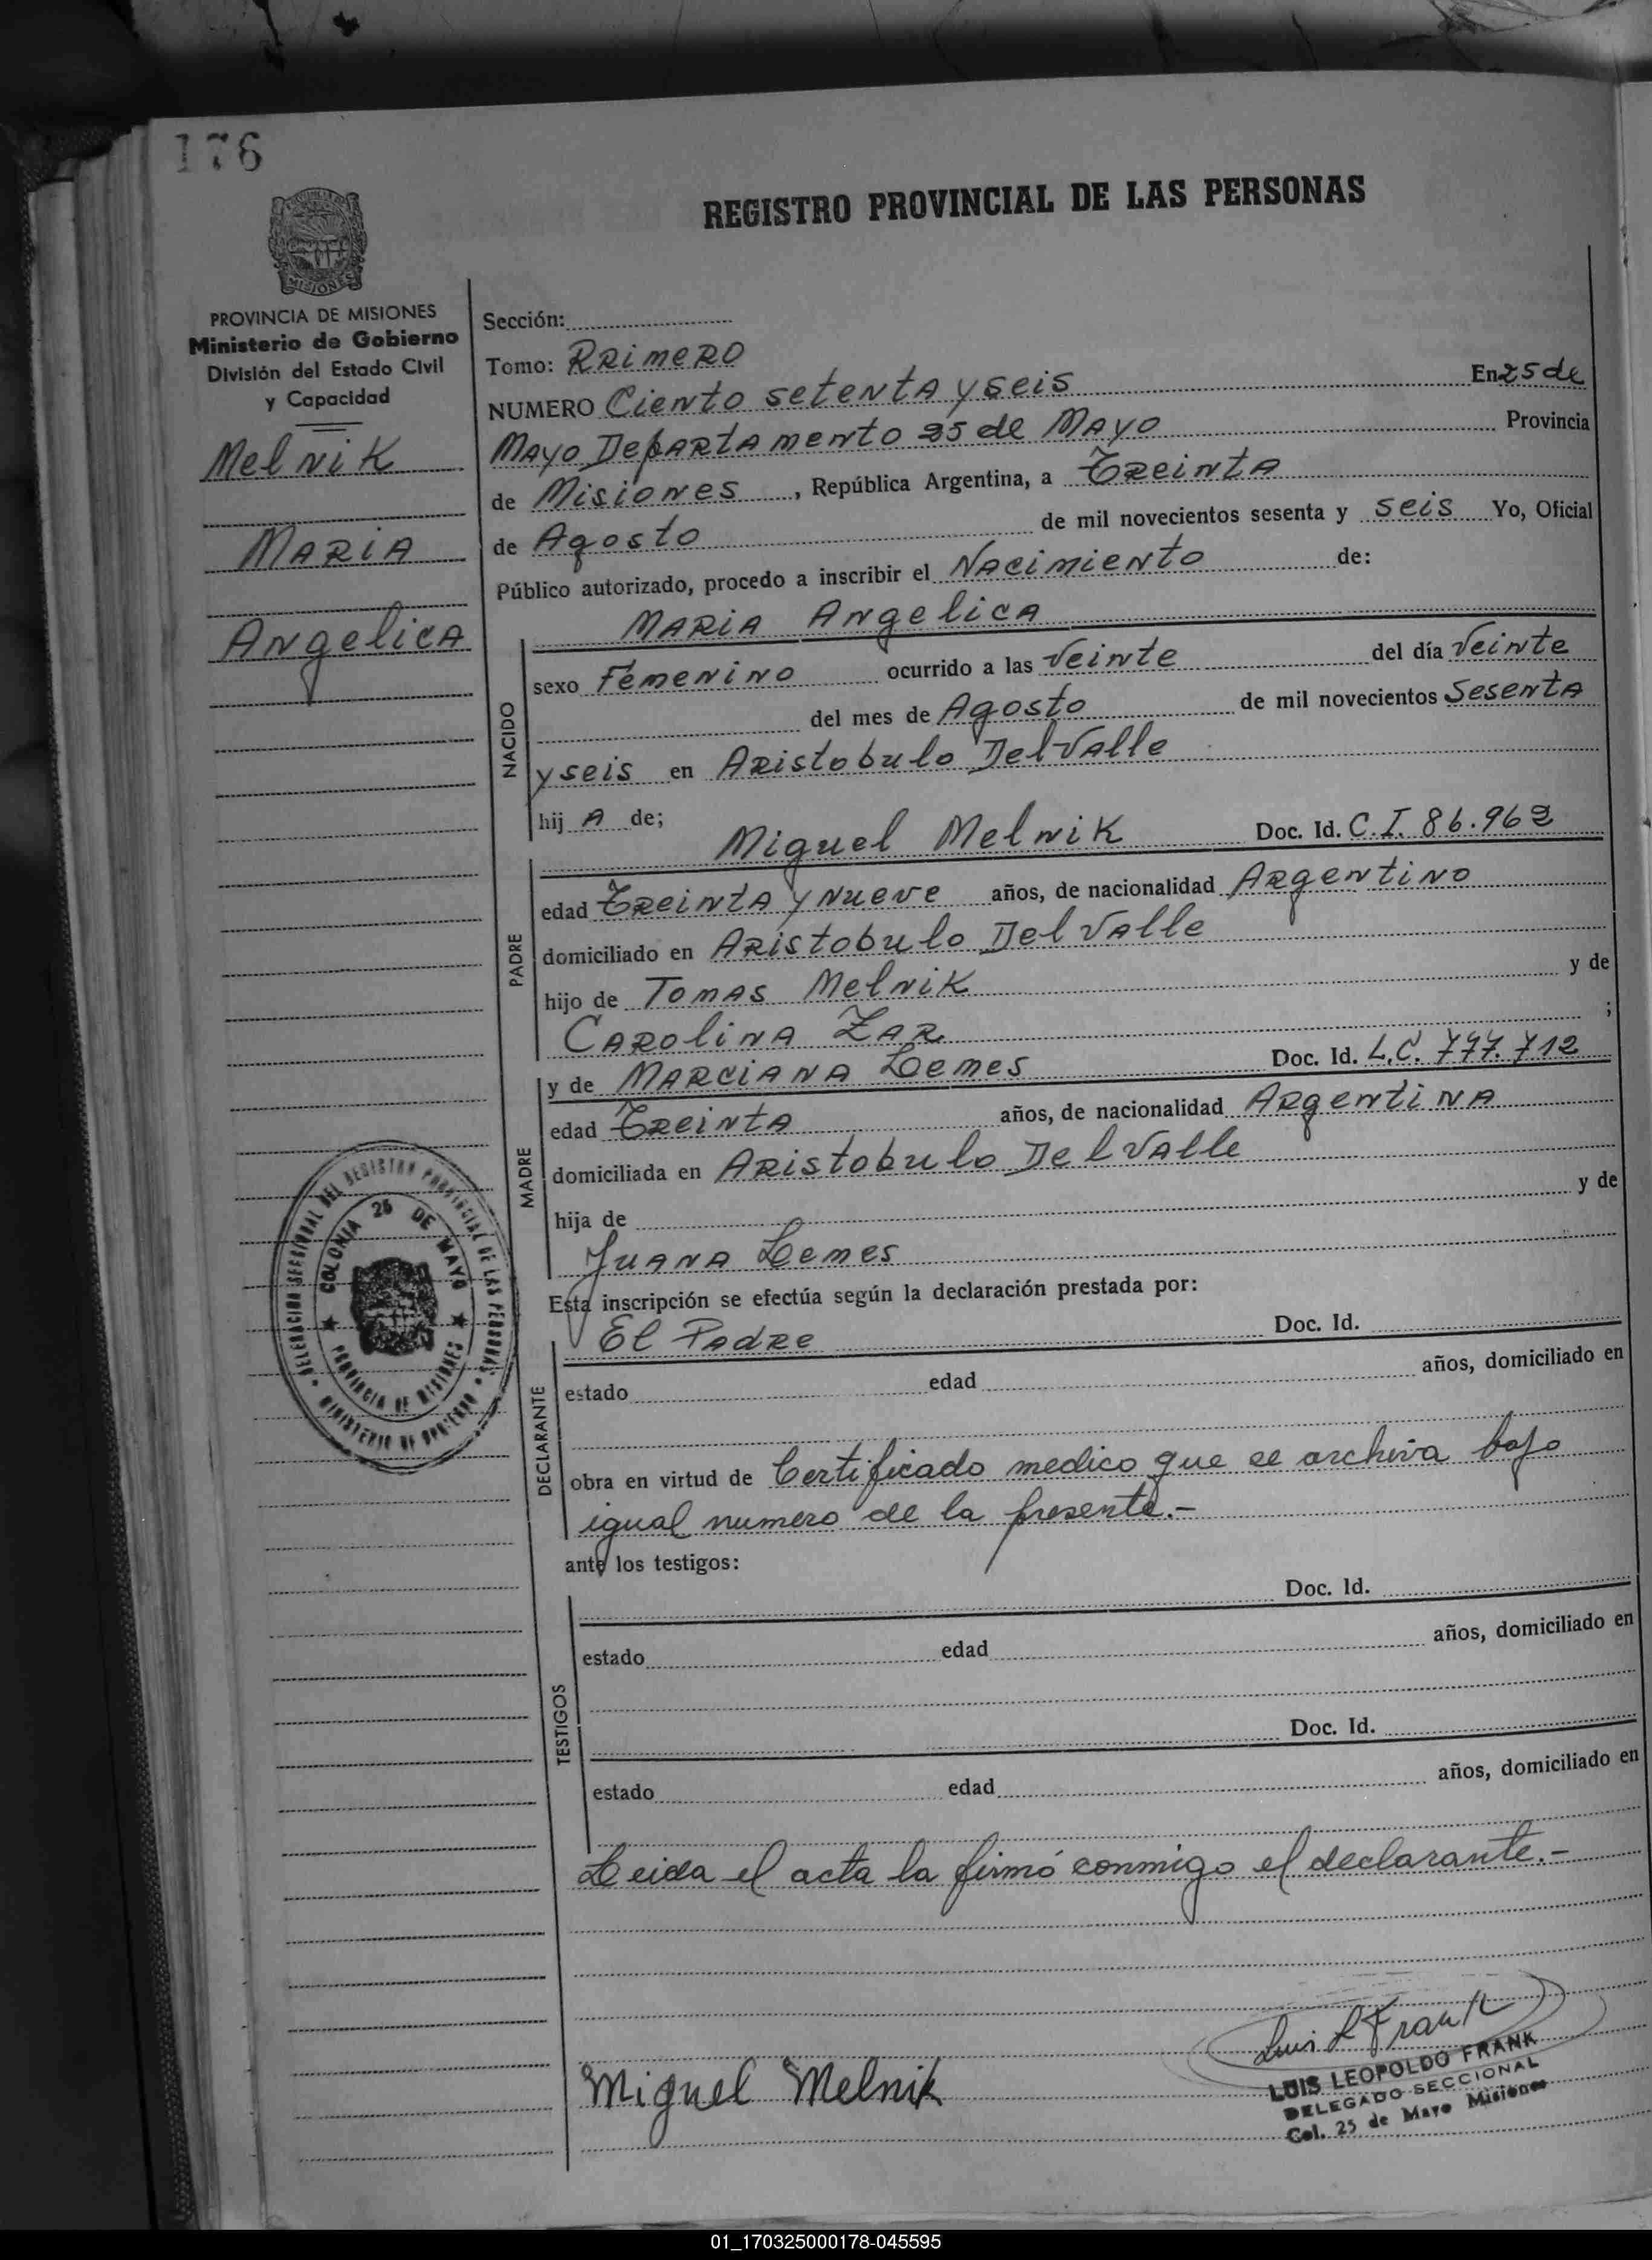 176
REGISTRO PROVINCIAL DE LAS PERSONAS
MISIONES
PROVINCIA DE MISIONES
Ministerio de Gobierno
División del Estado Civil
y Capacidad
Melnik
Maria
Angelica
Sección:
Tomo: RRimeRO
NUMERO Ciento setenta y seis En 25 de
Mayo Departamento 25 de Mayo Provincia
de Misiones, República Argentina, a Treinta
de Agosto de mil novecientos sesenta y seis Yo, Oficial
Público autorizado, procedo a inscribir el Nacimiento de:
Maria Angelica
NACIDO
sexo Femenino ocurrido a las Veinte del día Veinte
del mes de Agosto de mil novecientos Sesenta
y seis en Aristobulo Del Valle
hij A de;
PADRE
Miguel Melnik Doc. Id. C.I. 86.962
edad Treinta y nueve años, de nacionalidad Argentino
domiciliado en Aristobulo Del Valle
hijo de Tomas Melnik y de
Carolina Zar ;
MADRE
y de Marciana Lemes Doc. Id. L.C. 777.712
edad Treinta años, de nacionalidad Argentina
domiciliada en Aristobulo Del Valle
hija de y de
Juana Lemes
Esta inscripción se efectúa según la declaración prestada por:
DECLARANTE
El Padre Doc. Id.
estado edad años, domiciliado en
obra en virtud de Certificado medico que se archiva bajo
igual numero de la presente.-
ante los testigos:
TESTIGOS
Doc. Id.
estado edad años, domiciliado en
Doc. Id.
estado edad años, domiciliado en
Leida el acta la firmó conmigo el declarante.-
DELEGACION SECCIONAL DEL REGISTRO PROVINCIAL DE LAS PERSONAS
MINISTERIO DE GOBIERNO
COLONIA 25 DE MAYO
PROVINCIA DE MISIONES
Miguel Melnik
Luis L Frank
LUIS LEOPOLDO FRANK
DELEGADO SECCIONAL
Col. 25 de Mayo Misiones
01_170325000178-045595